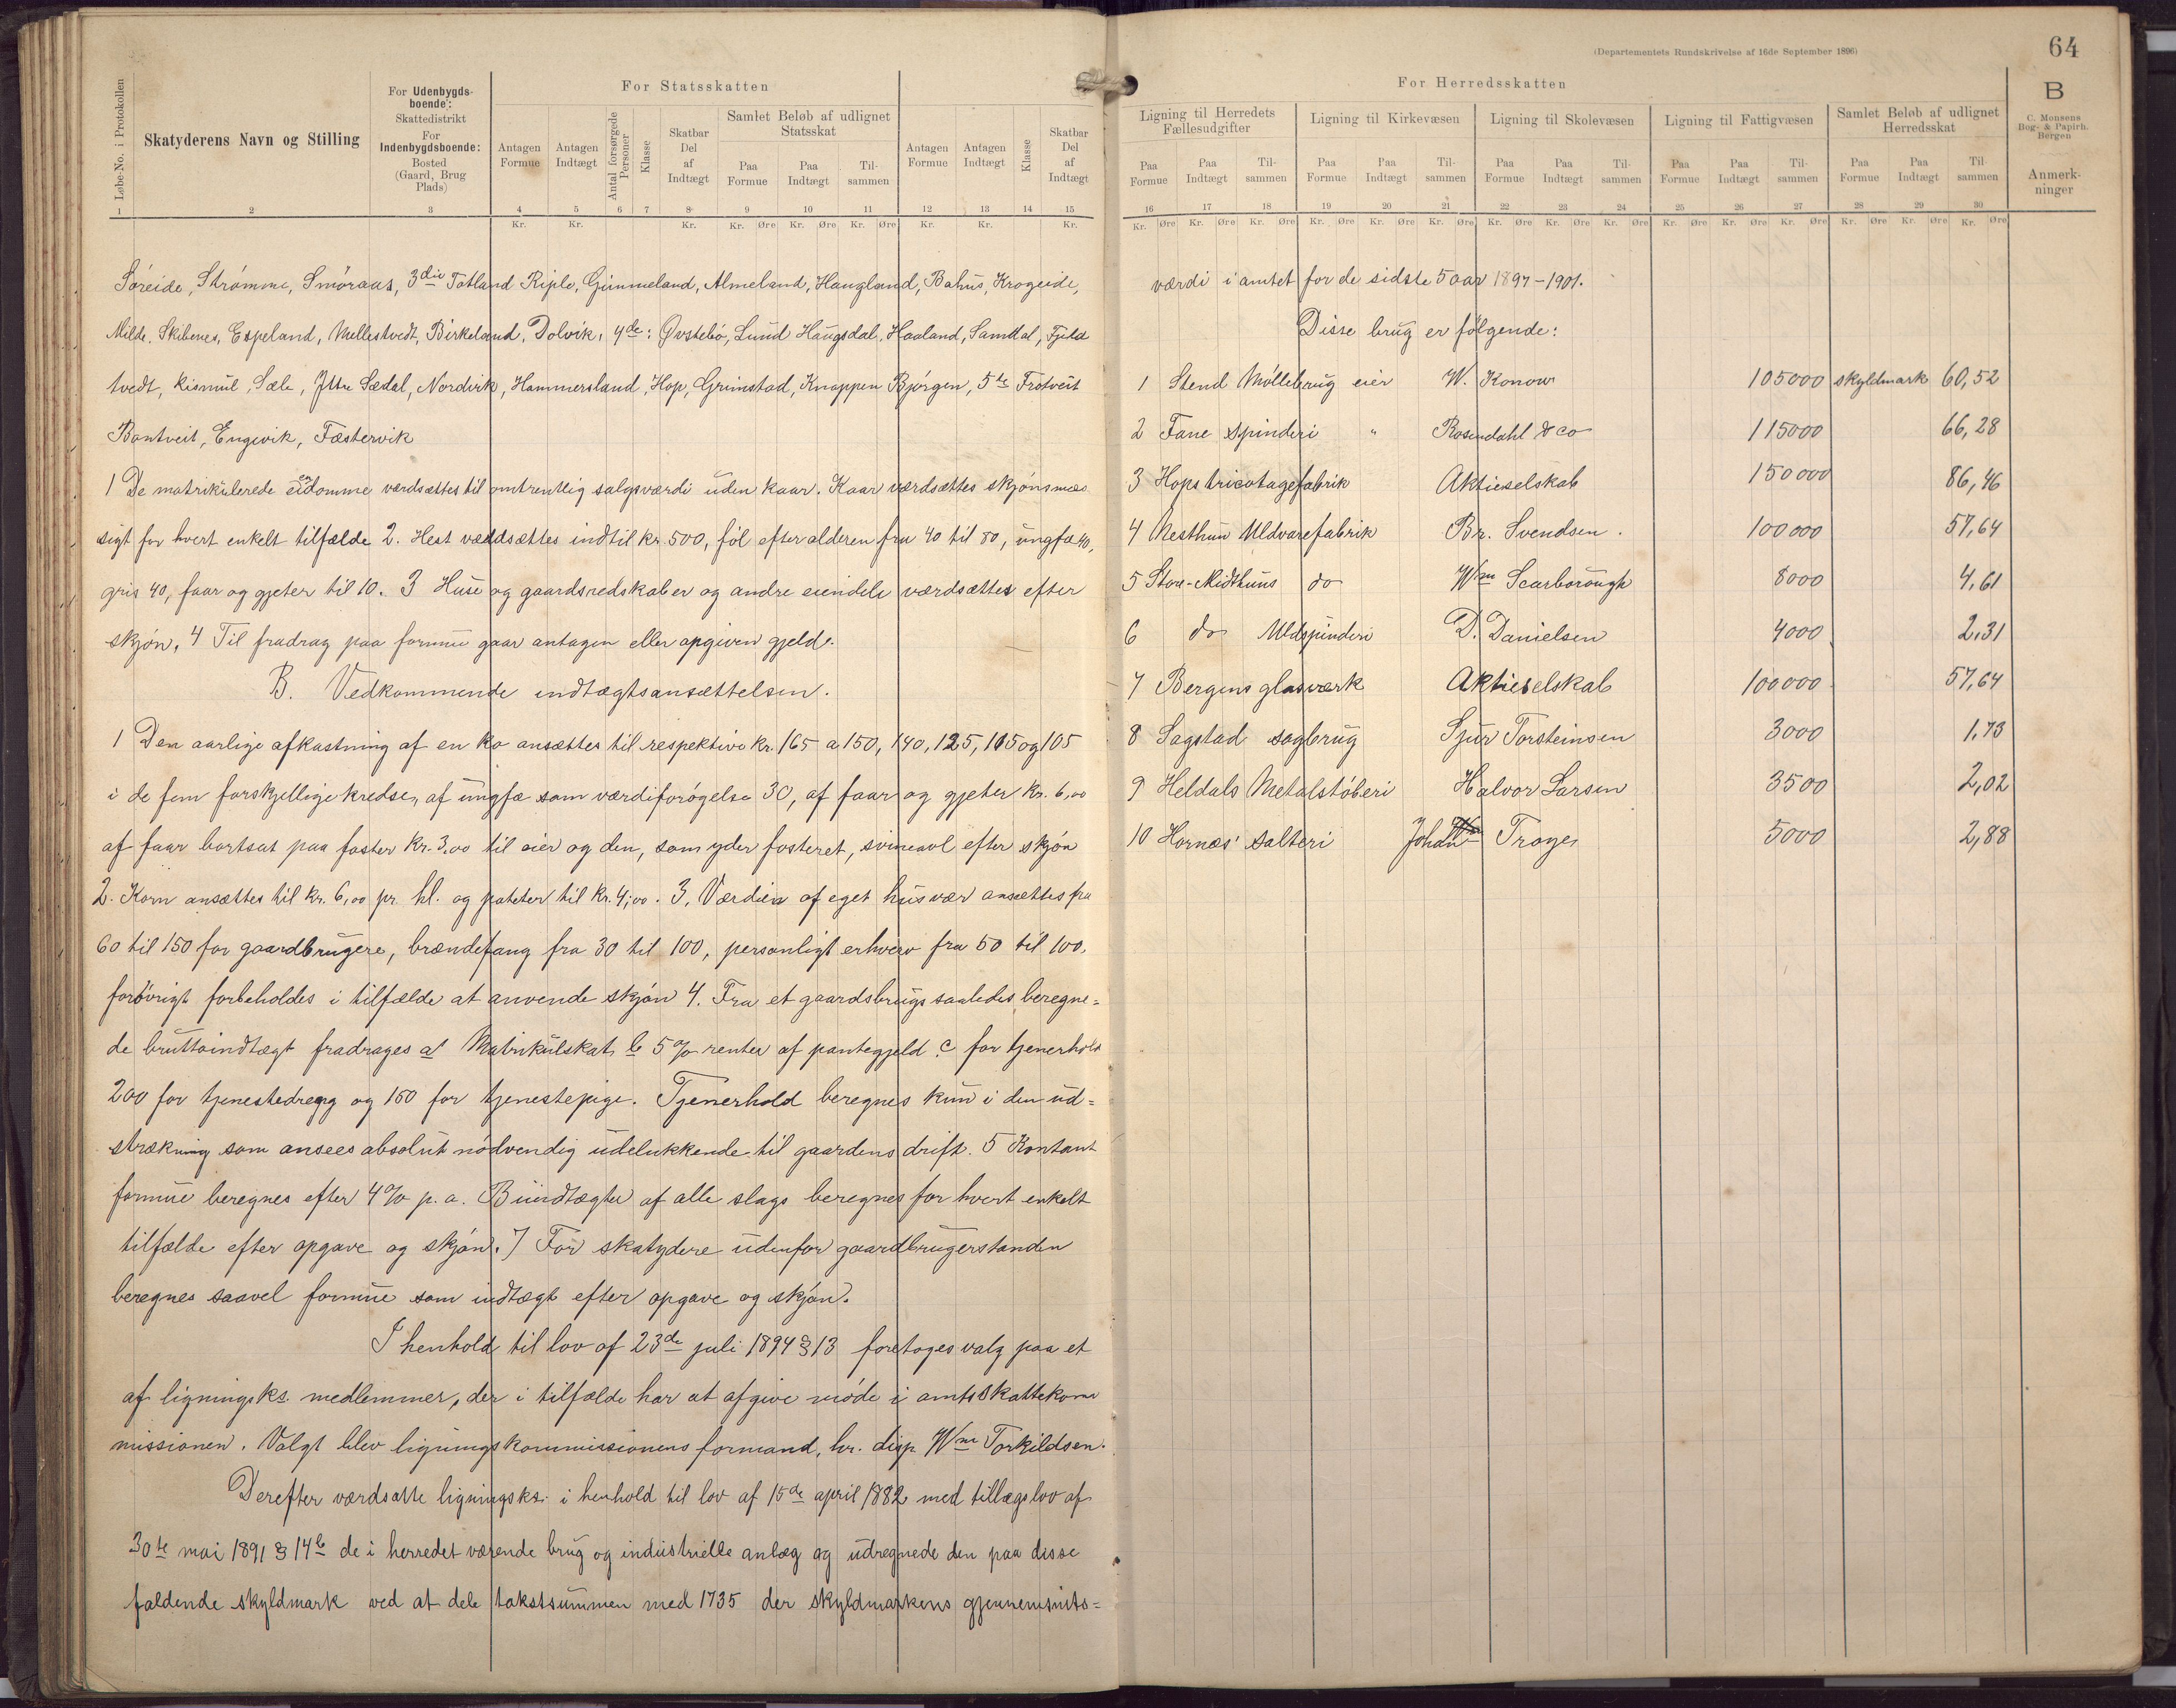 (Departementets Rundskrivelse af 16de September 1896)
64
For Statsskatten
For Herredsskatten
B
C. Monsens
Bog- & Papirh.
Bergen
Løbe-No. i Protokollen
Skatyderens Navn og Stilling
For Udenbygds-
boende:
Skattedistrikt
For
Indenbygdsboende:
Bosted
(Gaard, Brug
Plads)
Antagen Formue
Antagen Indtægt
Antal forsørgede Personer
Klasse
Skatbar Del af Indtægt
Samlet Beløb af udlignet Statsskat
Paa Formue Paa Indtægt Tilsammen
Antagen Formue
Antagen Indtægt
Klasse
Skatbar Del af Indtægt
Ligning til Herredets Fællesudgifter
Ligning til Kirkevæsen
Ligning til Skolevæsen
Ligning til Fattigvæsen
Samlet Beløb af udlignet Herredsskat
Paa Formue Paa Indtægt Til-sammen Paa Formue Paa Indtægt Til-sammen Paa Formue Paa Indtægt Til-sammen Paa Formue Paa Indtægt Til-sammen Paa Formue Paa Indtægt Til-sammen
Anmerk-
ninger
1 2 3 4 5 6 7 8 9 10 11 12 13 14 15
16 17 18 19 20 21 22 23 24 25 26 27 28 29 30
Kr. Kr. Kr. Kr. Øre Kr. Øre Kr. Øre Kr. Kr. Kr.
Kr. Øre Kr. Øre Kr. Øre Kr. Øre Kr. Øre Kr. Øre Kr. Øre Kr. Øre Kr. Øre Kr. Øre Kr. Øre Kr. Øre Kr. Øre Kr. Øre Kr. Øre
Søreide, Strømme, Smöraas, 3die Totland Riple, Gimmeland, Almeland, Haugland, Bahus, Krogeide,
Milde, Skibenes, Espeland, Mellestvedt, Birkeland, Dolvik, 4de: Øvstebø, Lund Haugsdal, Haaland, Samdal, Fjeld
tvedt, Kismul, Sæle, Ittre Sædal, Nordvik, Hammersland, Hop, Grimstad, Knappen Bjørgen, 5te Frotveit
Bontveit, Engevik, Fæstervik
1 De matrikulerede eiendomme værdsættes til omtrentlig salgsværdi uden kaar. Kaar værdsættes skjønsmæs
sigt for hvert enkelt tilfælde 2. Hest værdsættes indtil kr. 500, føl efter alderen fra 40 til 80, ungfæ 40,
gris 40, faar og gjeter til 10. 3 Huse og gaardsredskaber og andre eiendele værdsættes efter
skjøn. 4 Til fradrag paa formue gaar antagen eller opgiven gjeld.
B. Vedkommende indtægtsansættelsen.
1 Den aarlige afkastning af en ko ansættes til respektive kr. 165 a 150, 140, 125, 115 og 105
i de fem forskjellige kredse, af ungfæ som værdiforøgelse 30, af faar og gjeter kr. 6,00
af faar bortsat paa foster kr. 3,00 til eier og den, som yder fosteret, svineavl efter skjøn
2. Korn ansættes til kr. 6,00 pr. hl. og poteter til kr. 4,00. 3, Værdien af eget husvær ansættes fra
60 til 150 for gaardbrugere, brændefang fra 30 til 100, personligt erhverv fra 50 til 100,
forøvrigt forbeholdes i tilfælde at anvende skjøn 4. Fra et gaardsbrugs saaledes beregne=
de bruttoindtægt fradrages a Matrikulskat b 5 % renter af pantegjeld c for tjenerhold
200 for tjenestedreng og 150 for tjenestepige. Tjenerhold beregnes kun i den ud=
strækning som ansees absolut nødvendig udelukkende til gaardens drift. 5 Kontant
formue beregnes efter 4% p. a. Biindtægter af alle slags beregnes for hvert enkelt
tilfælde efter opgave og skjøn. 7 For skatydere udenfor gaardbrugerstanden
beregnes saavel formue som indtægt efter opgave og skjøn.
I henhold til lov af 23de juli 1894 § 13 foretages valg paa et
af ligningsks. medlemmer, der i tilfælde har at afgive møde i amtsskattekom
missionen. Valgt blev ligningskommissionens formand, hr. disp. Wm Torkildsen.
Derefter værdsatte ligningsks. i henhold til lov af 15de april 1882 med tillægslov af
30te mai 1891 § 14b de i herredet værende brug og industrielle anlæg og udregnede den paa disse
faldende skyldmark ved at dele takstsummen med 1735 der skyldmarkens gjennemsnits=
værdi i amtet for de sidste 5 aar 1897-1901.
Disse brug er følgende:
1 Stend Møllebrug eier W. Konow 105000 skyldmark 60,52
2 Fane Spinderi " Rosendahl & co 115000 66,28
3 Hops tricotagefabrik Aktieselskab 150000 86,46
4 Nesttun Uldvarefabrik Br. Svendsen. 100000 57,64
5 Store-Midthuns do Wm Scarborough 8000 4,61
6 do Uldspinderi D. Danielsen 4000 2,31
7 Bergens glasværk Aktieselskab 100000 57,64
8 Sagstad sagbrug Sjur Torsteinsen 3000 1,73
9 Heldals Metalstøberi Halvor Larsen 3500 2,02
10 Hornæs' salteri Johan Troye 5000 2,88